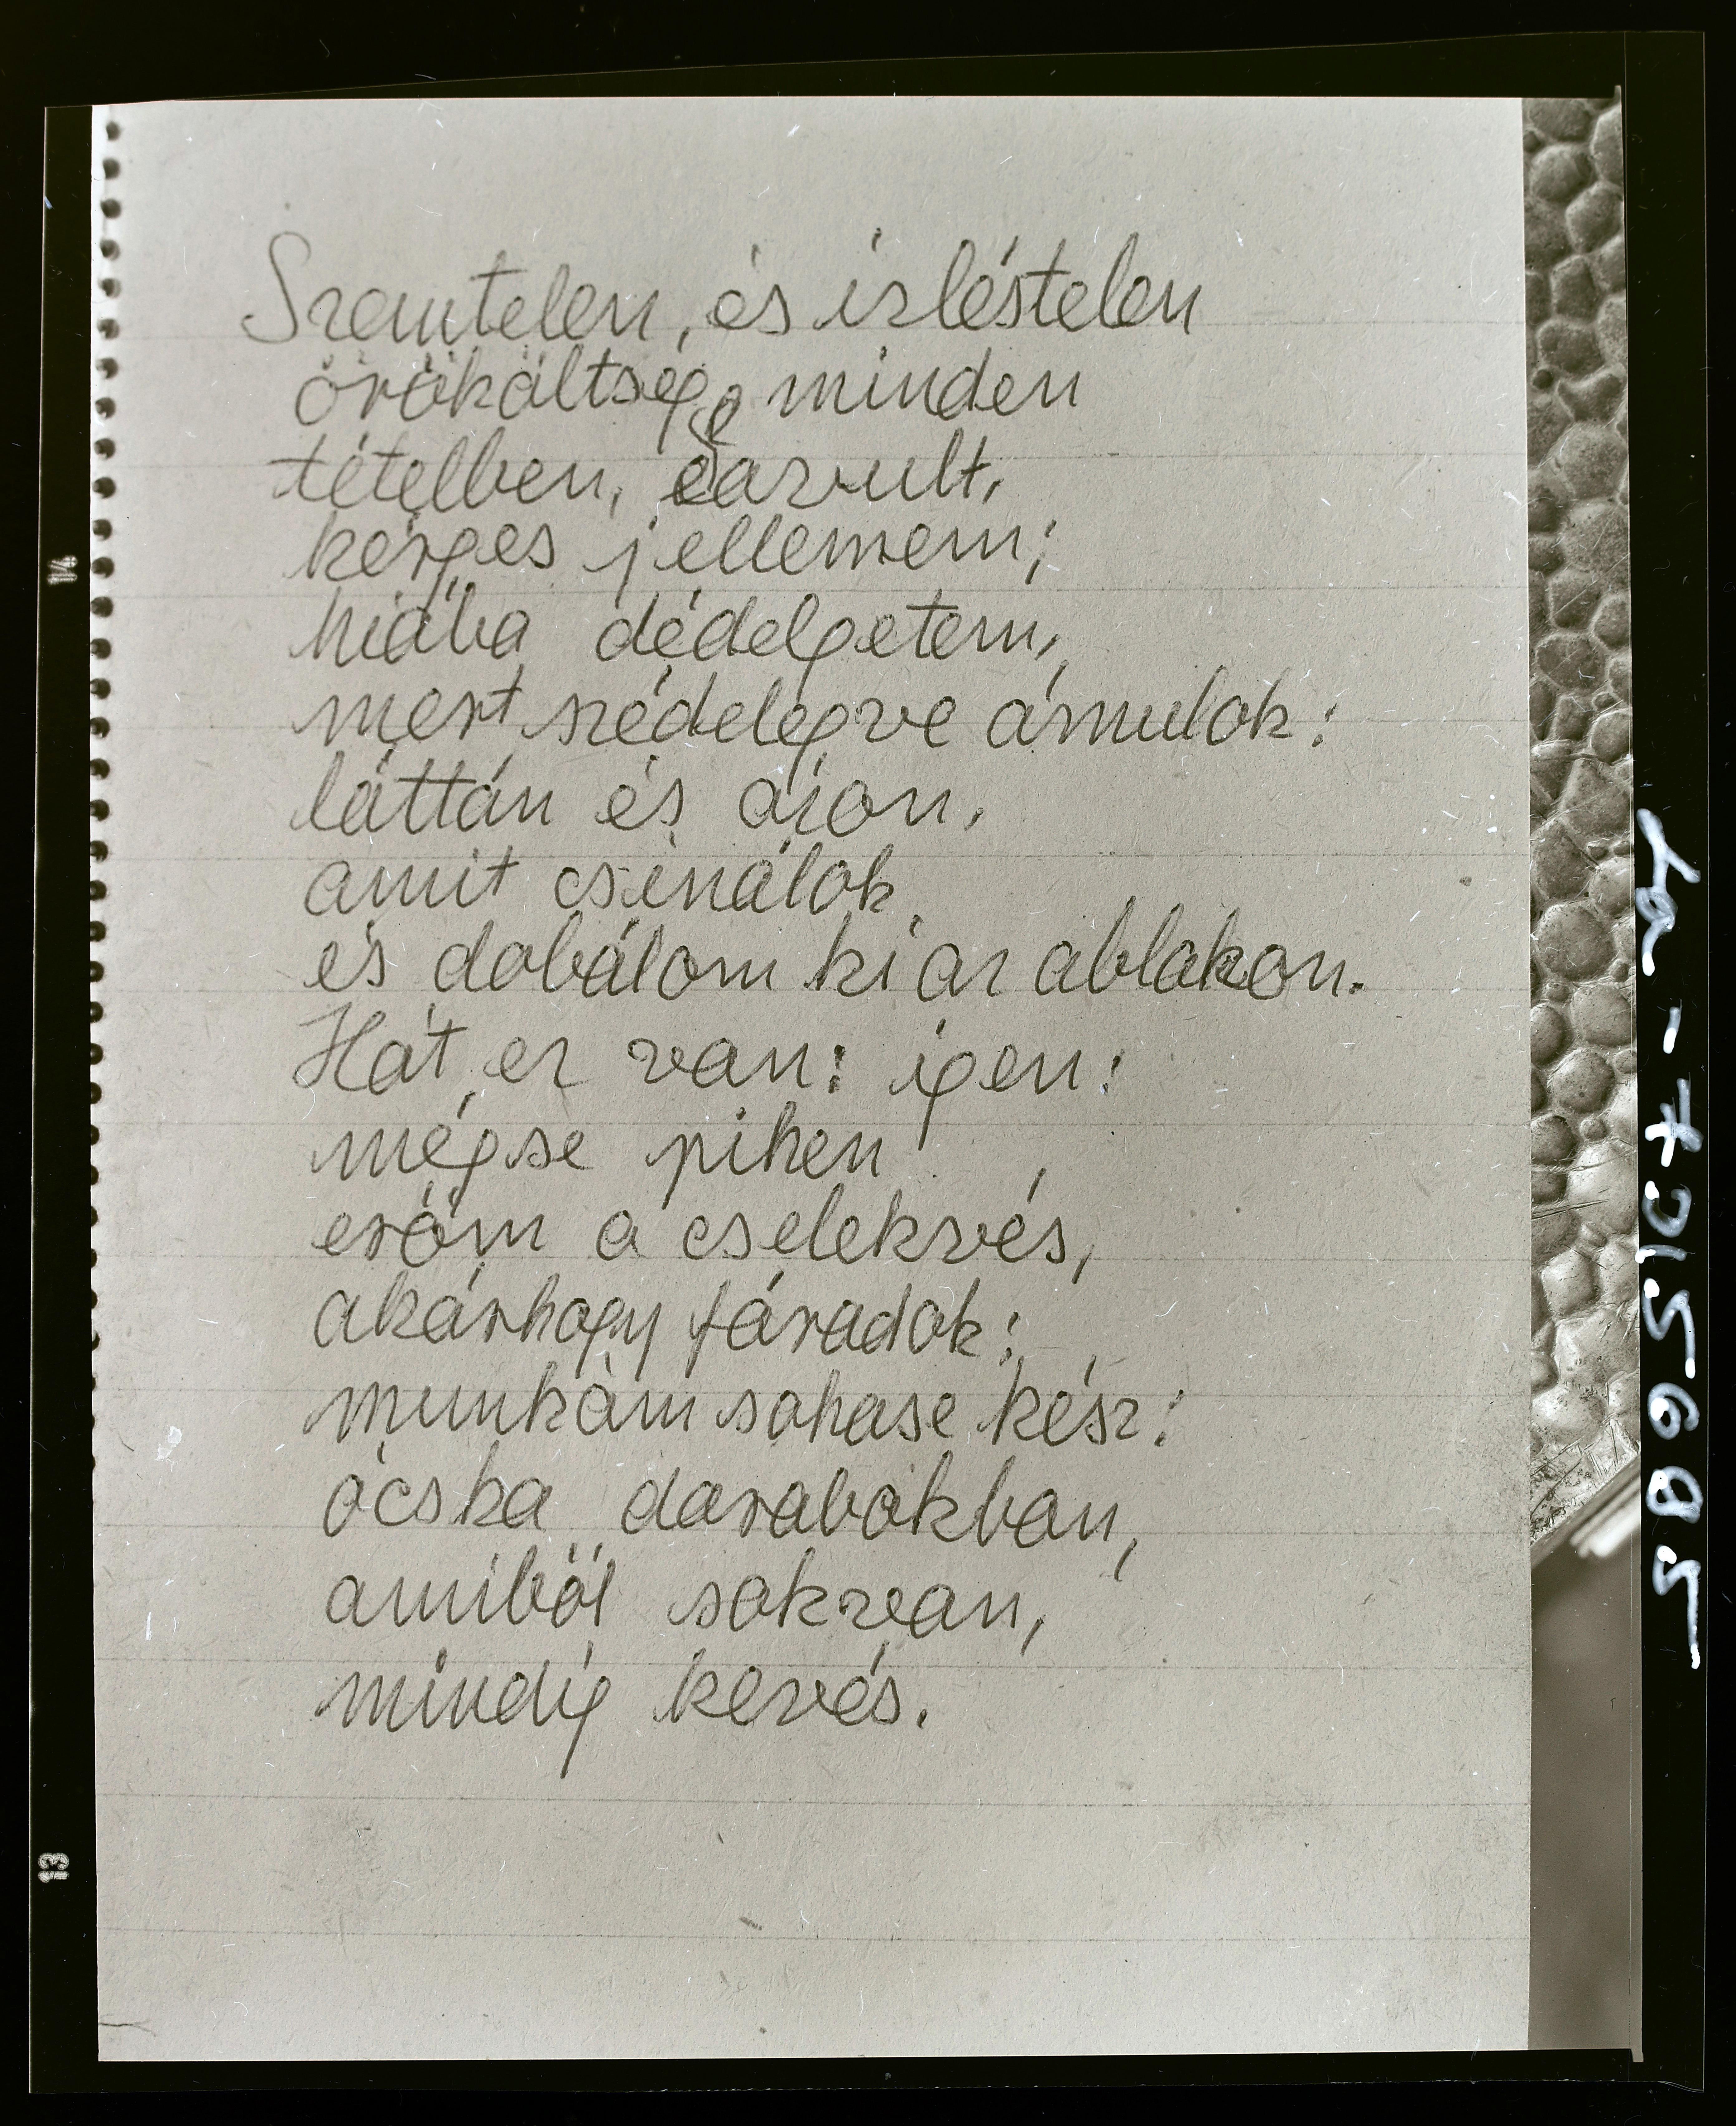 Szemtelen, és izléstelen
örökéltség minden
tételben, savult,
kérges jellemem;
hiába dédelgetem,
mert szédelegve ámulok:
láttán és azon,
amit csinálok
és dobálom ki az ablakon.
Hát ez van: igen:
mégse pihen
eröm a cselekvés,
akárhogy fáradok:
munkám sohase kész:
ócska darabokban,
amiböl sok van,
mindig kevés.
14
13